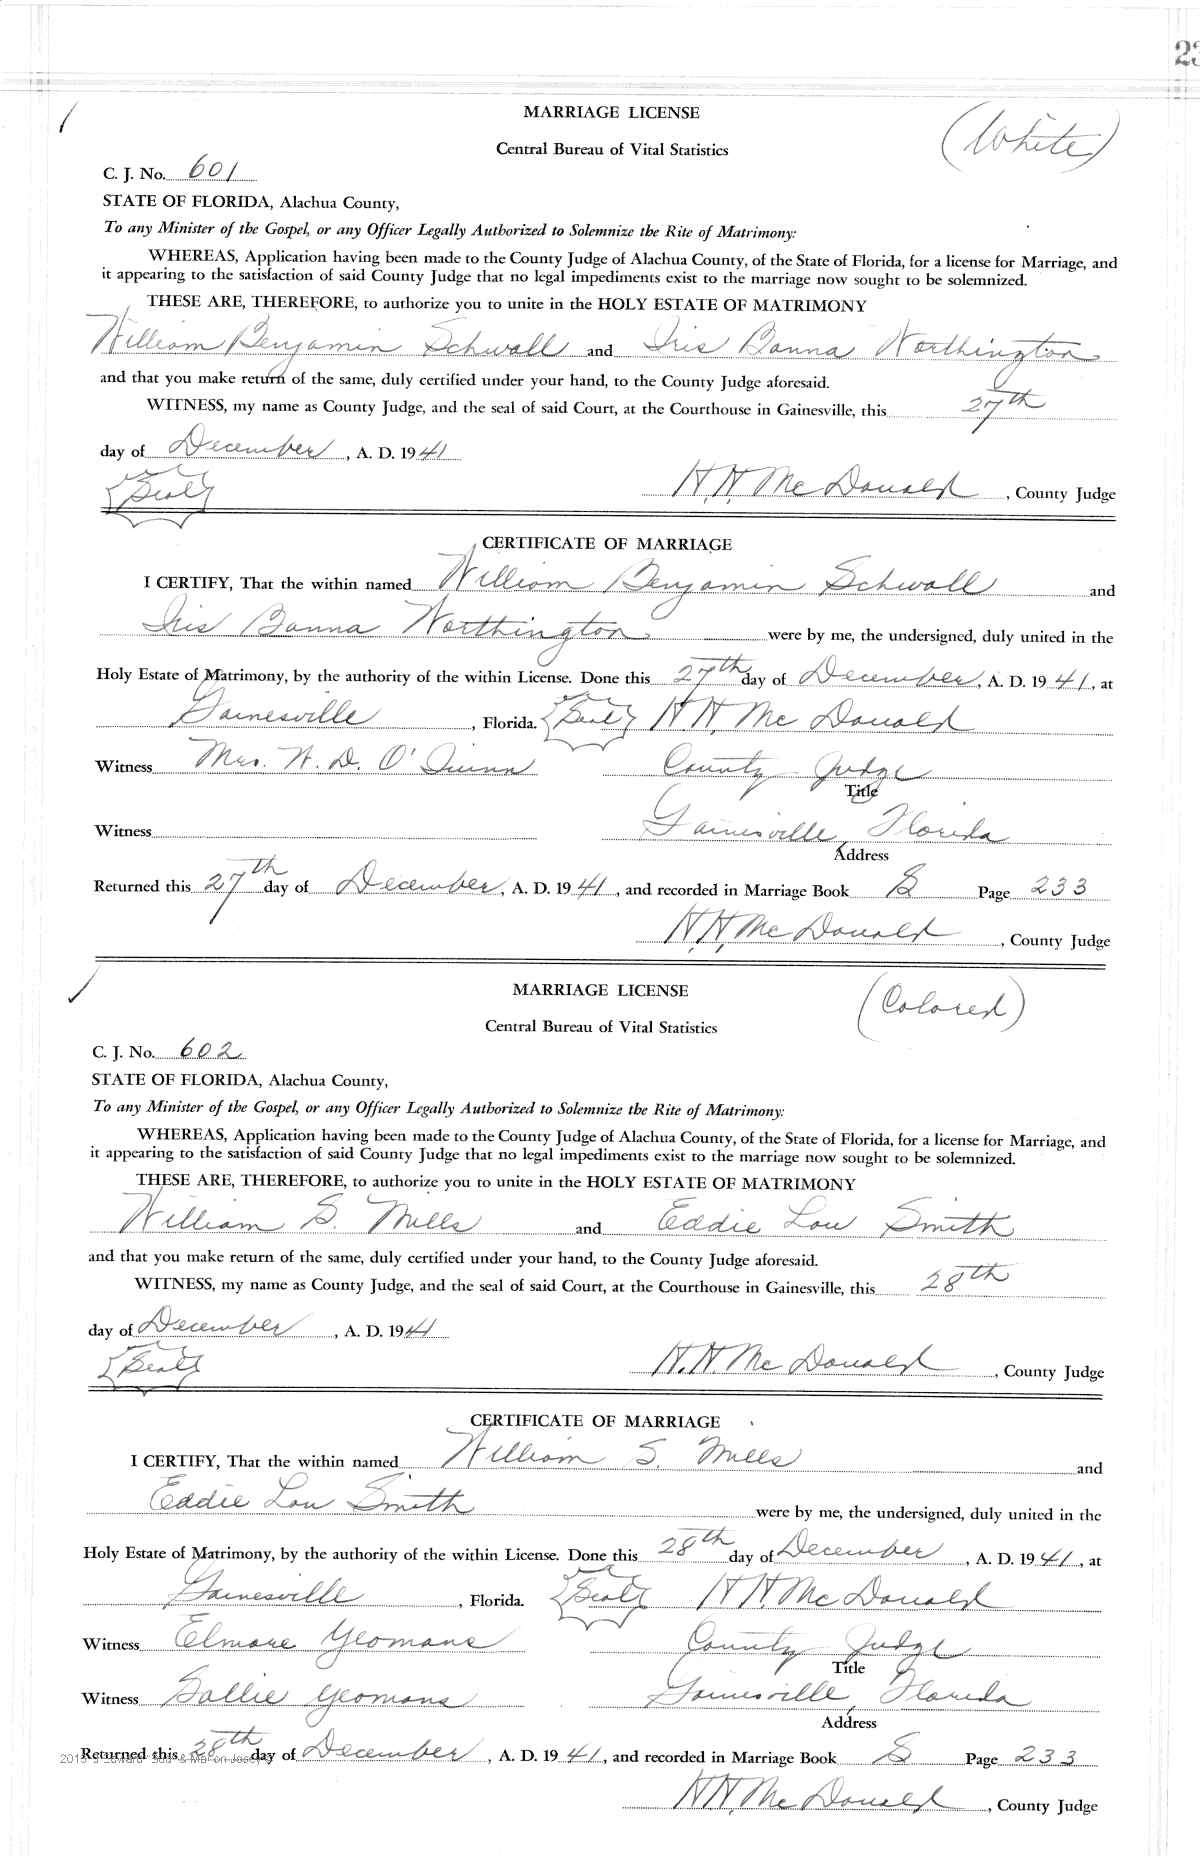 23
MARRIAGE LICENSE
(White)
Central Bureau of Vital Statistics
C. J. No. 601
STATE OF FLORIDA, Alachua County,
To any Minister of the Gospel, or any Officer Legally Authorized to Solemnize the Rite of Matrimony:
WHEREAS, Application having been made to the County Judge of Alachua County, of the State of Florida, for a license for Marriage, and
it appearing to the satisfaction of said County Judge that no legal impediments exist to the marriage now sought to be solemnized.
THESE ARE, THEREFORE, to authorize you to unite in the HOLY ESTATE OF MATRIMONY
William Benjamin Schwall and Iris Banna Worthington
and that you make return of the same, duly certified under your hand, to the County Judge aforesaid.
WITNESS, my name as County Judge, and the seal of said Court, at the Courthouse in Gainesville, this 27th
day of December, A. D. 1941
(Seal) H. H. McDonald, County Judge
CERTIFICATE OF MARRIAGE
I CERTIFY, That the within named William Benjamin Schwall and
Iris Banna Worthington were by me, the undersigned, duly united in the
Holy Estate of Matrimony, by the authority of the within License. Done this 27th day of December, A. D. 1941, at
Gainesville, Florida. (Seal) H. H. McDonald
Witness Mrs. W. D. O'Quinn County Judge
Title
Witness Gainesville, Florida
Address
Returned this 27th day of December, A. D. 1941, and recorded in Marriage Book S Page 233
H. H. McDonald, County Judge
MARRIAGE LICENSE
(Colored)
Central Bureau of Vital Statistics
C. J. No. 602
STATE OF FLORIDA, Alachua County,
To any Minister of the Gospel, or any Officer Legally Authorized to Solemnize the Rite of Matrimony:
WHEREAS, Application having been made to the County Judge of Alachua County, of the State of Florida, for a license for Marriage, and
it appearing to the satisfaction of said County Judge that no legal impediments exist to the marriage now sought to be solemnized.
THESE ARE, THEREFORE, to authorize you to unite in the HOLY ESTATE OF MATRIMONY
William S. Mills and Eddie Lou Smith
and that you make return of the same, duly certified under your hand, to the County Judge aforesaid.
WITNESS, my name as County Judge, and the seal of said Court, at the Courthouse in Gainesville, this 28th
day of December, A. D. 1941
(Seal) H. H. McDonald, County Judge
CERTIFICATE OF MARRIAGE
I CERTIFY, That the within named William S. Mills and
Eddie Lou Smith were by me, the undersigned, duly united in the
Holy Estate of Matrimony, by the authority of the within License. Done this 28th day of December, A. D. 1941, at
Gainesville, Florida. (Seal) H. H. McDonald
Witness Elmore Yeomans County Judge
Title
Witness Sallie Yeomans Gainesville, Florida
Address
Returned this 28th day of December, A. D. 1941, and recorded in Marriage Book S Page 233
H. H. McDonald, County Judge